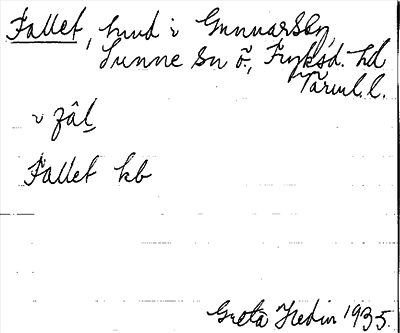 Fallet, hmd i Gunnarsby,
Sunne sn ö., Fryksd. hd
Värml. l.
i fàl
Fallet kb
Greta Hedin 1935.